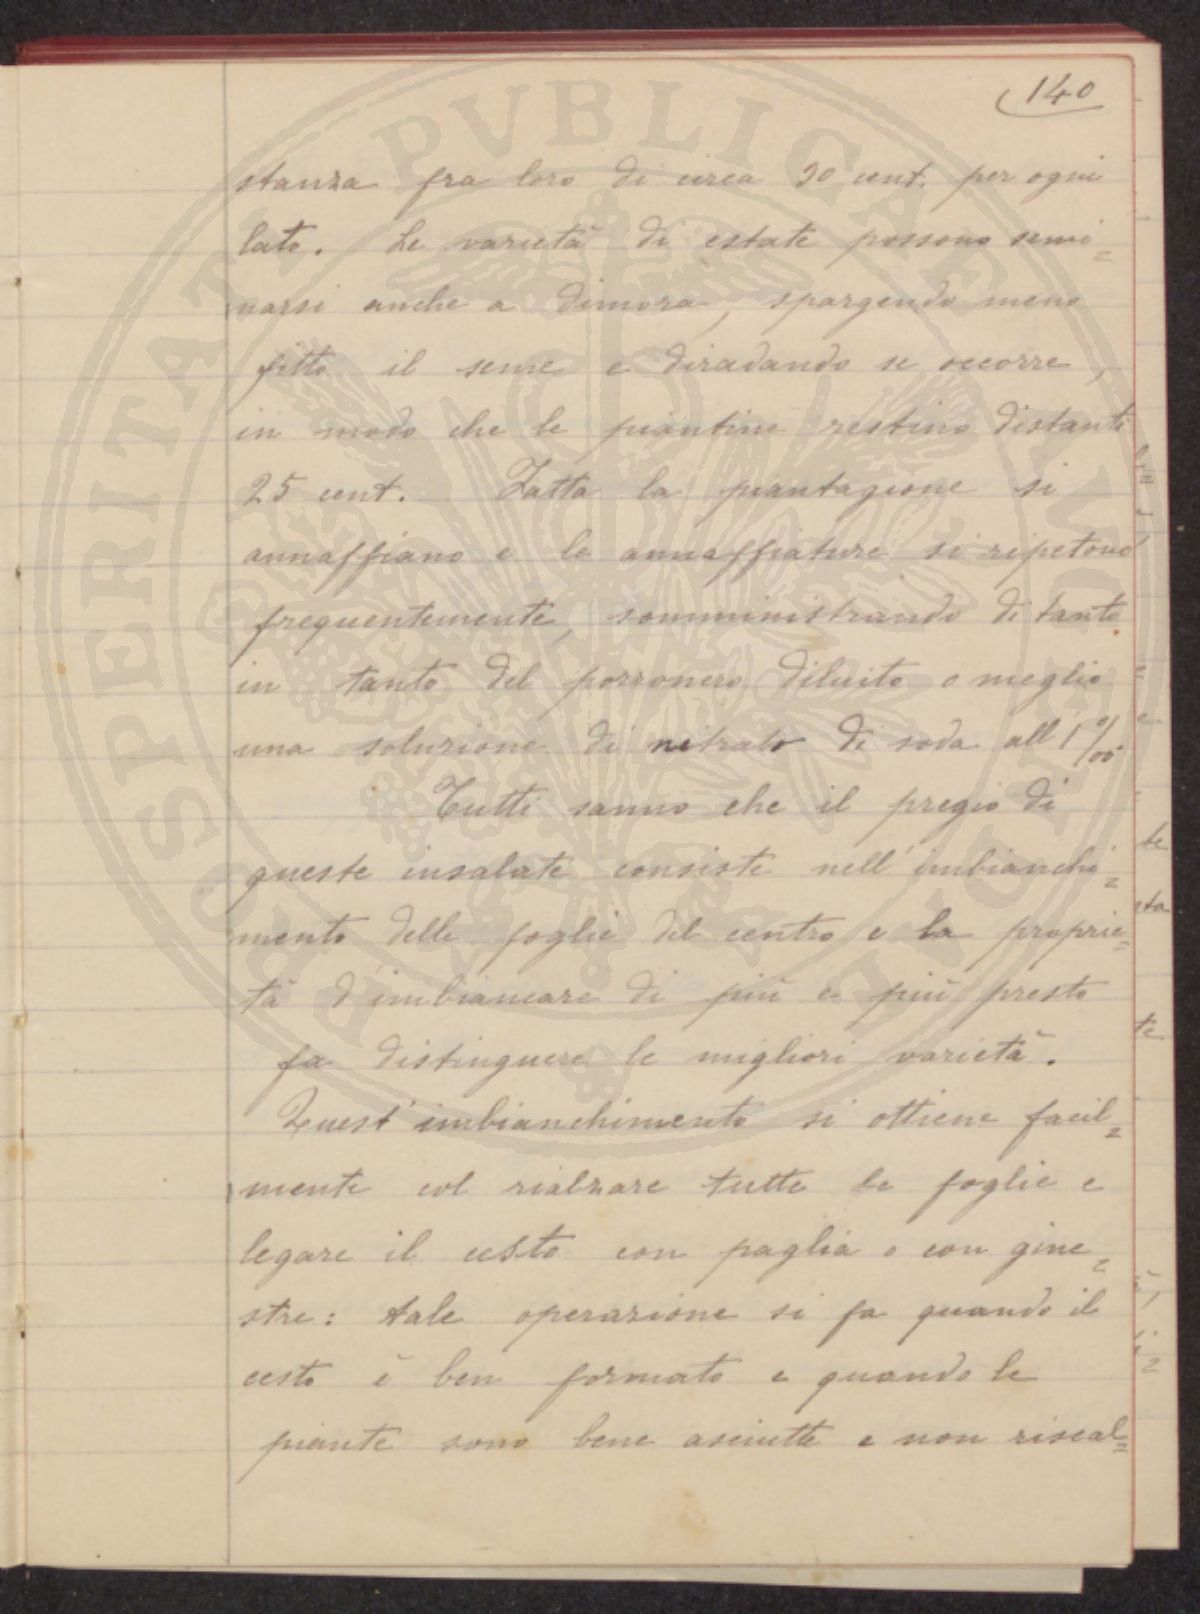 140
stanza fra loro di circa 30 cent. per ogni
lato. Le varietà di estate possono semi=
narsi anche a dimora, spargendo meno
fitto il seme e diradando se occorre,
in modo che le piantine restino distanti
25 cent. Fatta la piantagione si
annaffiano e le annaffiature si ripetono
frequentemente, somministrando di tanto
in tanto del pozzonero diluito o meglio
una soluzione di nitrato di soda all'1‰
Tutti sanno che il pregio di
queste insalate consiste nell'imbianchi=
mento delle foglie del centro e la proprie=
tà d'imbiancare di più e più presto
fa distinguere le migliori varietà.
Quest'imbianchimento si ottiene facil=
mente col rialzare tutte le foglie e
legare il cesto con paglia o con gine=
stre: tale operazione si fa quando il
cesto è ben formato e quando le
piante sono bene asciutte e non riscal=
PROSPERITATI PVBLICAE AVGENDAE